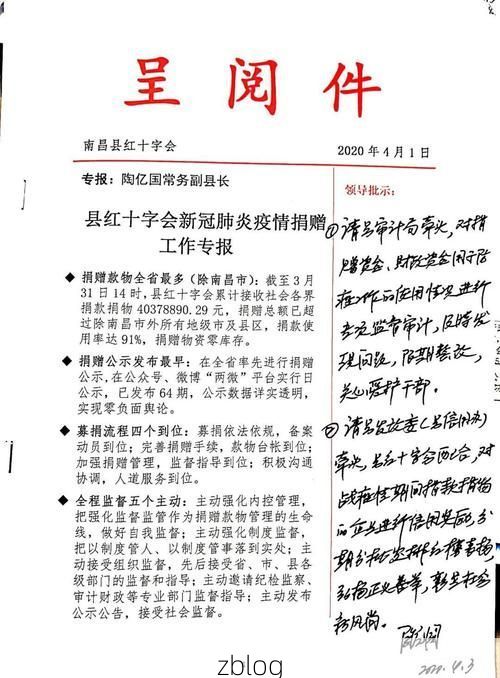 呈阅件
南昌县红十字会
2020年4月1日
专报：陶亿国常务副县长
县红十字会新冠肺炎疫情捐赠
工作专报
◆ 捐赠款物全省最多（除南昌市）：截至3月
31日14时，县红十字会累计接收社会各界
捐款捐物40378890.29元，捐赠总额已超
过除南昌市外所有地级市及县区，捐款使
用率达91%，捐赠物资零库存。
◆ 捐赠公示发布最早：在全省率先进行捐赠
公示，在公众号、微博“两微”平台实行日
公示，已发布64期，公示数据详实透明，
实现零负面舆论。
◆ 募捐流程四个到位：募捐依法依规，备案
动员到位；完善捐赠手续，款物台帐到位；
加强捐赠管理，监督指导到位；积极沟通
协调，人道服务到位。
◆ 全程监督五个主动：主动强化内控管理，
把强化监督监管作为捐赠款物管理的生命
线，做好自我监督；主动强化制度监督，
把以制度管人、以制度管事落到实处；主
动接受组织监督，先后接受省、市、县各
级部门的监督和指导；主动邀请纪检监察、
审计财政等专业部门监督指导；主动发布
公示公告，接受社会监督。
领导批示：
①请县审计局牵头，对捐
赠资金、财政资金用于防
疫工作的使用情况进行
专项监督审计，及时发
现问题，限期整改，
关心爱护干部。
②请县发改委（县信用办）
牵头，县红十字会配合，对
战疫情期间捐款捐物
的企业进行信用奖励，分
弘扬正义善举，彰显社会
新风尚。
2020.4.3
zblog